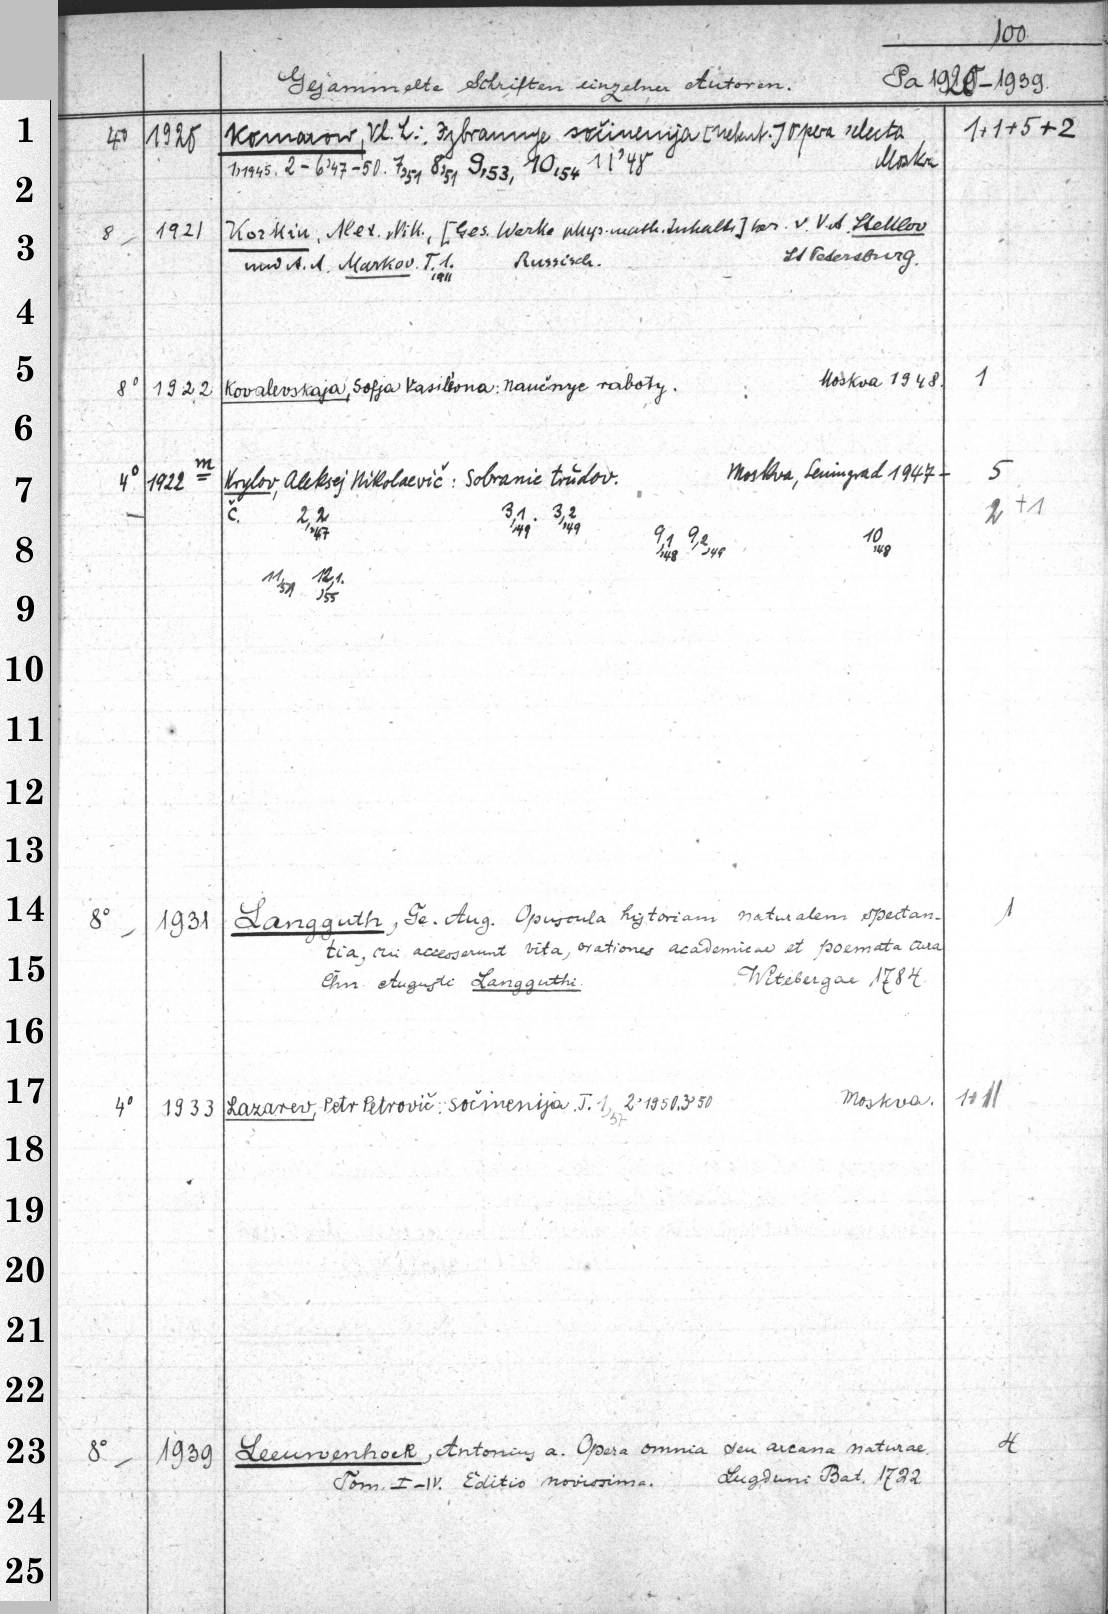 100
Gesammelte Schriften einzelner Autoren. Pa 1920–1939.
1 4° 1920 Komarow, Vl. L.: Izbrannye sočinenija Opera selecta 1+1+5+2
1,1945. 2–6,'47–50. 7,51 8,51 9,53, 10,54 11,'48 Moskva
2
8 1921 Korkin, Alex. Nik., [Ges. Werke phys.-math. Inhalts] her. v. V. A. Stekllov
3 und A. A. Markov. T. 1. 1911 Russisch. St Petersburg.
4
5 8° 1922 Kovalevskaja, Sofja Vasilevna: Naučnye raboty. Moskva 1948. 1
6
7 4° 1922 m Krylov, Aleksej Nikolaevič: Sobranie trudov. Moskva, Leningrad 1947– 5
Č. 2,2,'47 3,1,'49. 3,2,'49 2 +1
8 9,1,'48 9,2,'49 10,'48
11,'51 12,1.,'55
9
10
11
12
13
14 8° 1931 Langguth, Ge. Aug. Opuscula historiam naturalem spectan- 1
tia, cui accesserunt vita, orationes academicae et poemata cura
15 Chn. Augusti Langguthi. Witebergae 1784.
16
17 4° 1933 Lazarev, Petr Petrovič: Sočinenija. T. 1,57 2'1950.3'50 Moskva. 1+11
18
19
20
21
22
23 8° 1939 Leeuwenhoek, Antonius a. Opera omnia seu arcana naturae. 4
Tom. I–IV. Editio novissima. Lugduni Bat. 1722
24
25